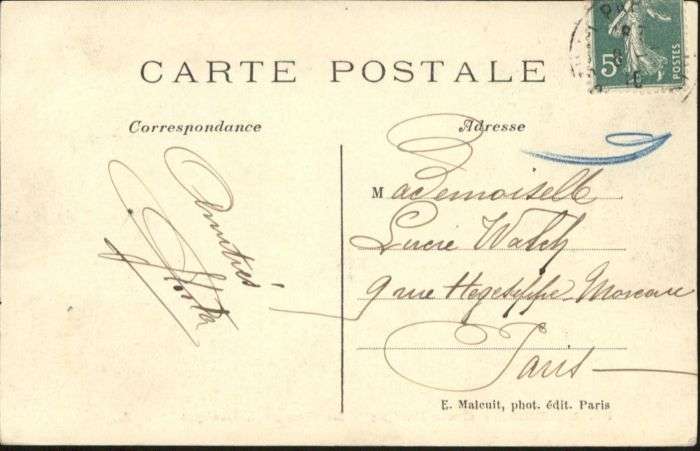 CARTE POSTALE
Correspondance
Adresse
Amitiés
Mademoiselle
Lucie Walch
9 rue Hegesippe Moreau
Paris
E. Malcuit, phot. édit. Paris
5
POSTES